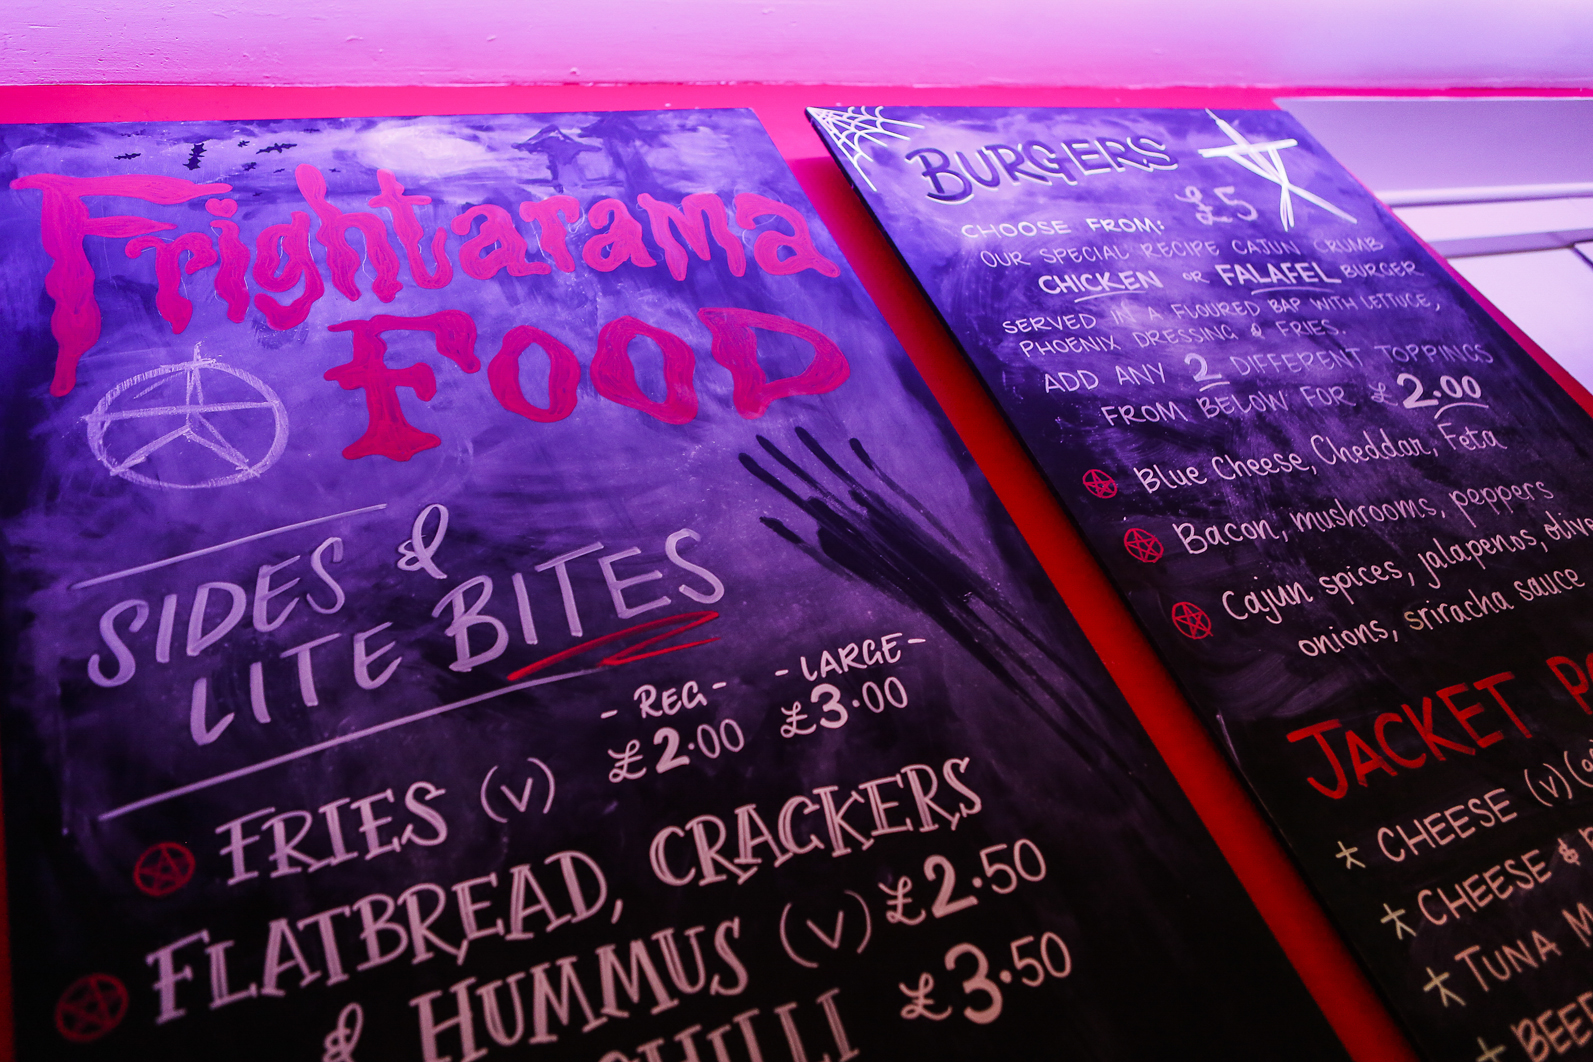 Frightarama
FOOD
SIDES &
LITE BITES
- REG - - LARGE -
FRIES (V) £2.00 £3.00
FLATBREAD, CRACKERS
& HUMMUS (V) £2.50
CHILLI £3.50
BURGERS
£5
CHOOSE FROM:
OUR SPECIAL RECIPE CAJUN CRUMB
CHICKEN OR FALAFEL BURGER
SERVED IN A FLOURED BAP WITH LETTUCE,
PHOENIX DRESSING & FRIES.
ADD ANY 2 DIFFERENT TOPPINGS
FROM BELOW FOR £2.00
Blue Cheese, Cheddar, Feta
Bacon, mushrooms, peppers
Cajun spices, jalapenos,
onions, sriracha sauce
JACKET
CHEESE (V)
CHEESE &
TUNA